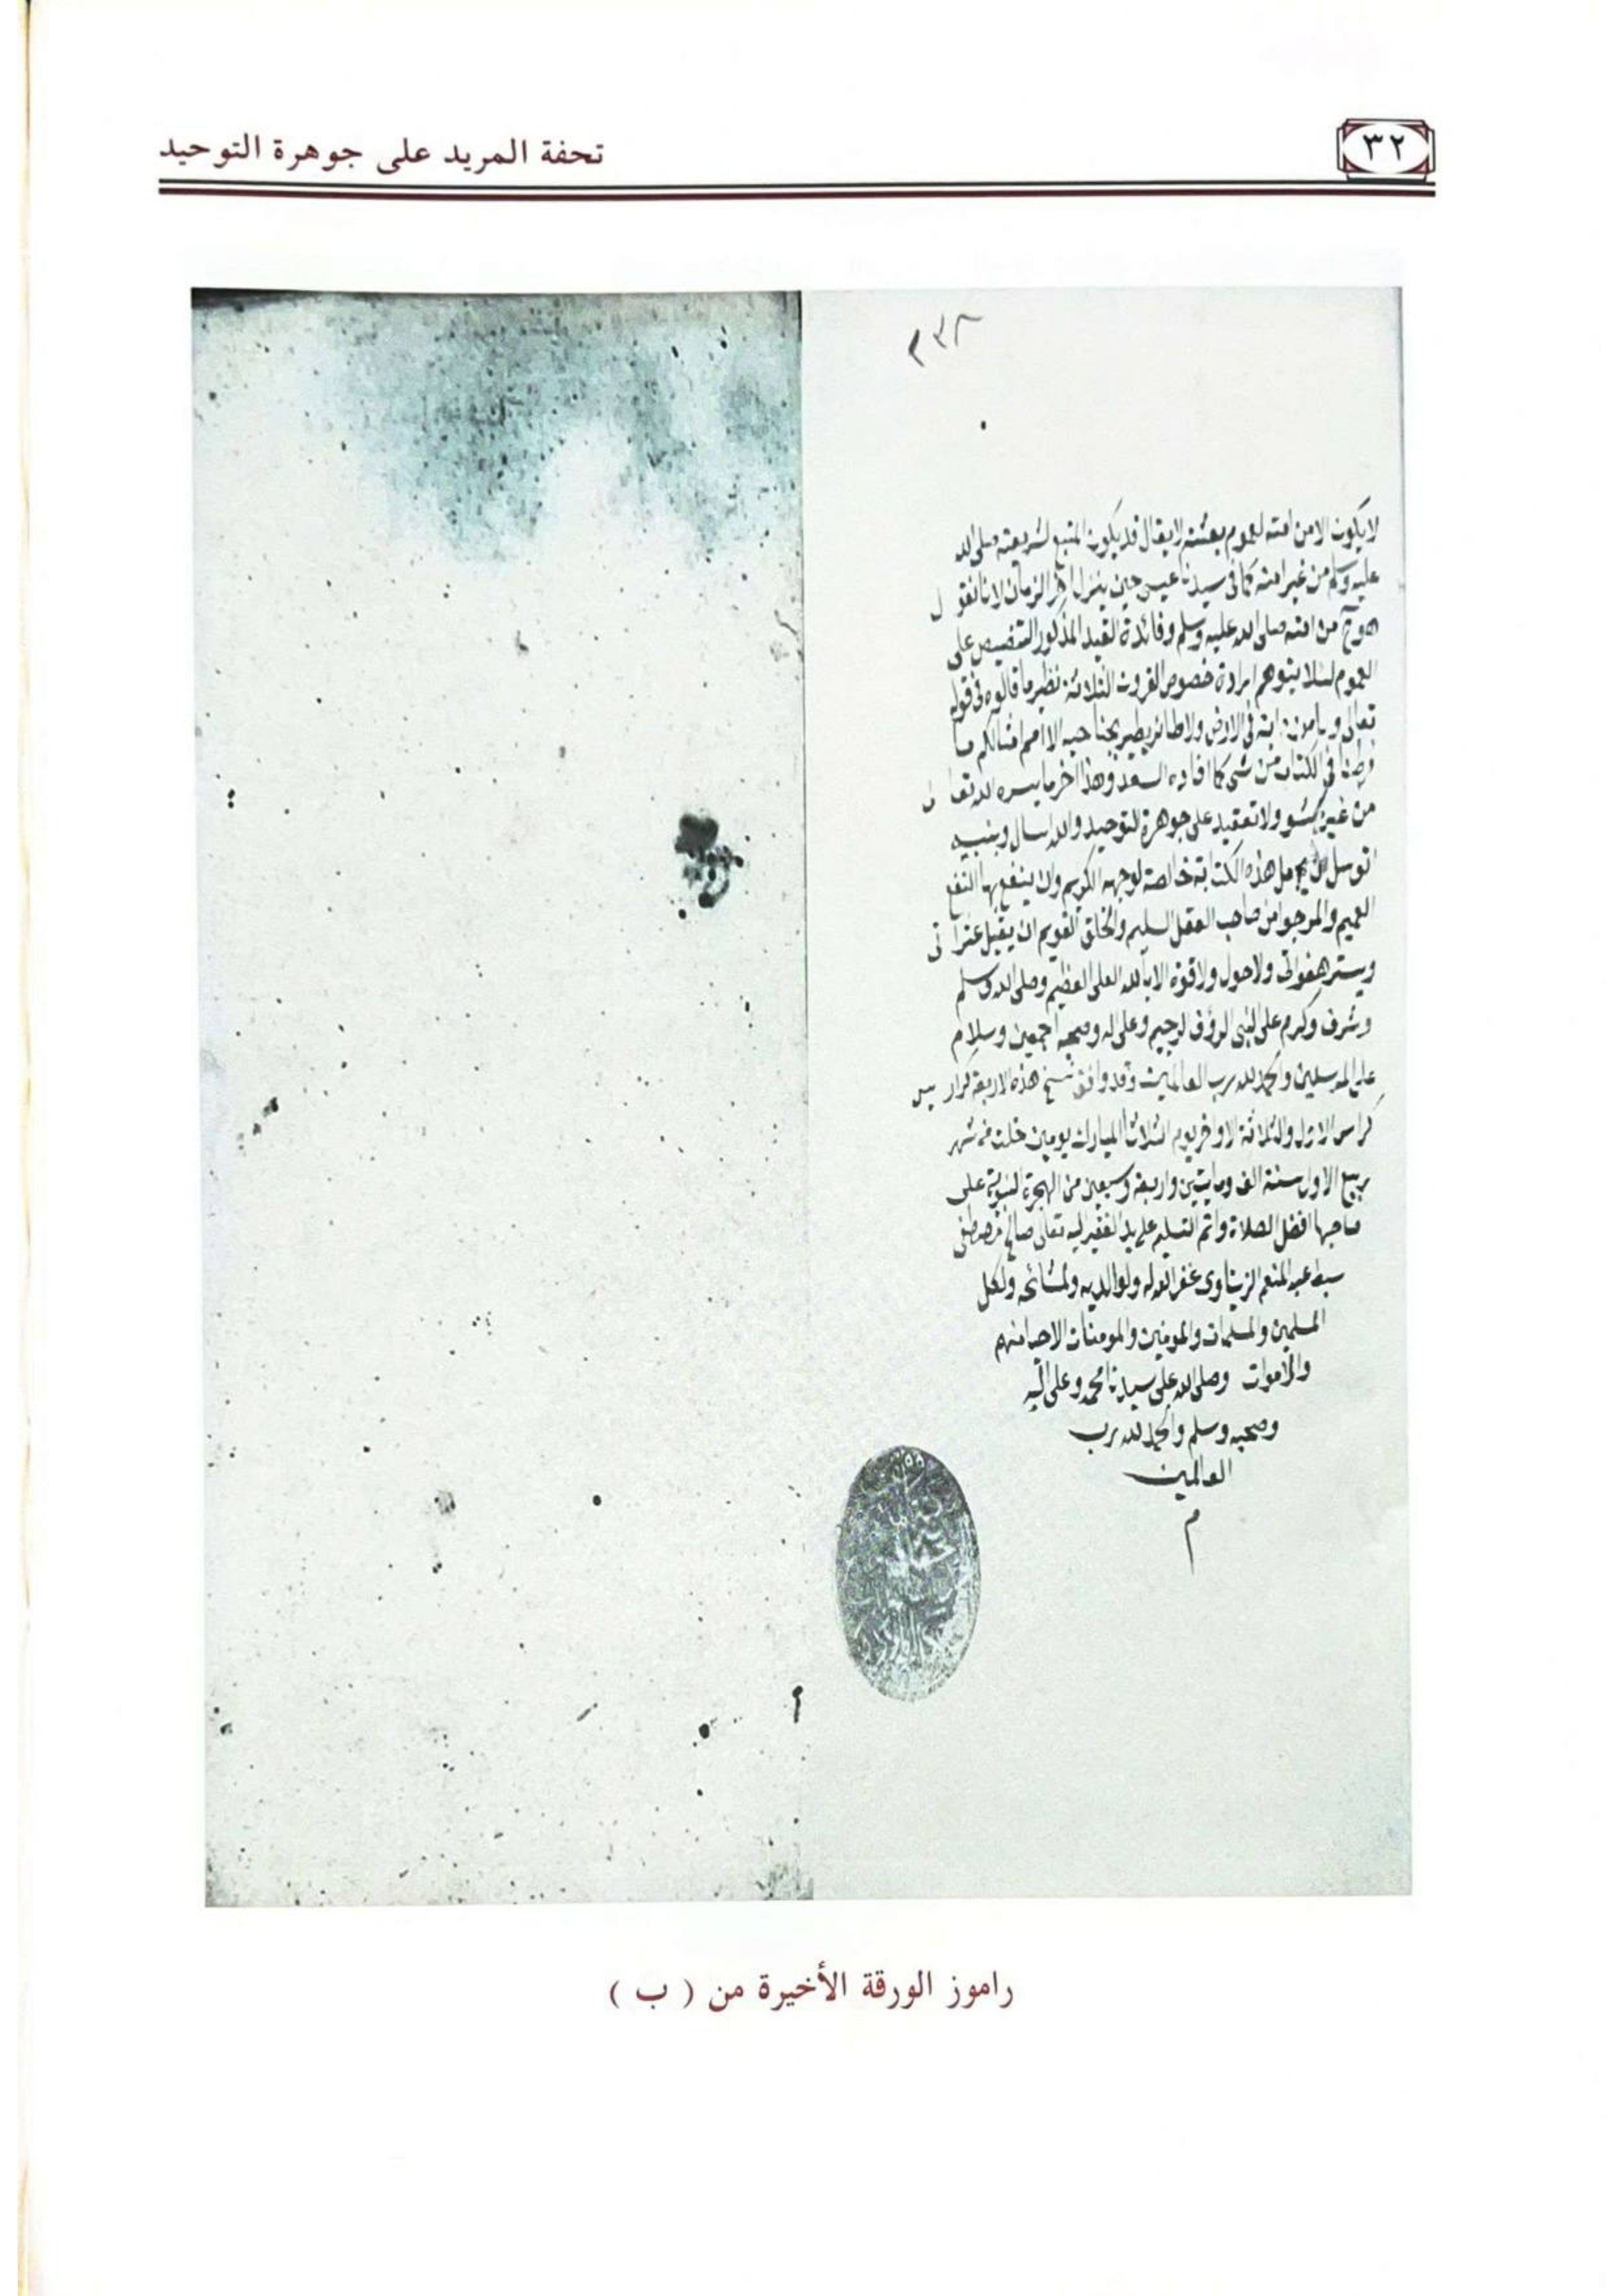 ٣٢
تحفة المريد على جوهرة التوحيد
٢٣٨
لا يكون الا من امته لعموم بعثته لا يقال قد يكون المتبع لشريعته صلى الله
عليه وسلم من غير امته كما في سيدنا عيسى حين ينزل اخر الزمان لانا نقول
هو ح من امته صلى الله عليه وسلم وفائدة القيد المذكور التنصيص على
العموم لئلا يتوهم ارادة خصوص القرون الثلاثة نظير ما قالوه في قوله
تعالى وما من دابة في الارض ولا طائر يطير بجناحيه الا امم امثالكم ما
فرطنا في الكتاب من شي كما افاده السعد وهذا اخر ما يسره الله تعالى
من غير حشو ولا تعقيد على جوهرة التوحيد والله اسال وبنبيه
اتوسل ان يجعل هذه الكتابة خالصة لوجهه الكريم وان ينفع بها النفع
العميم والمرجو من صاحب العقل السليم والخلق القويم ان يقيل عثراتي
ويستر هفواتي ولا حول ولا قوة الا بالله العلي العظيم وصلى الله وسلم
وشرف وكرم على النبي الرؤف الرحيم وعلى اله وصحبه اجمعين وسلام
على المرسلين والحمد لله رب العالمين وقد وافق نسخ هذه الاربعة كراريس
كراس الاول والثلاثة الاواخر يوم الثلاث المبارك يومين خلت من شهر
ربيع الاول سنة الف ومايتين واربعة وسبعين من الهجرة النبوية على
صاحبها افضل الصلاة واتم التسليم على يد الفقير اليه تعالى صالح مصطفى
سبط عبد المنعم الزيناوي غفر الله له ولوالديه ولمشائخه ولكل
المسلمين والمسلمات والمومنين والمومنات الاحيا منهم
والاموات وصلى الله على سيدنا محمد وعلى اله
وصحبه وسلم والحمد لله رب
العالمين
م
راموز الورقة الأخيرة من ( ب )